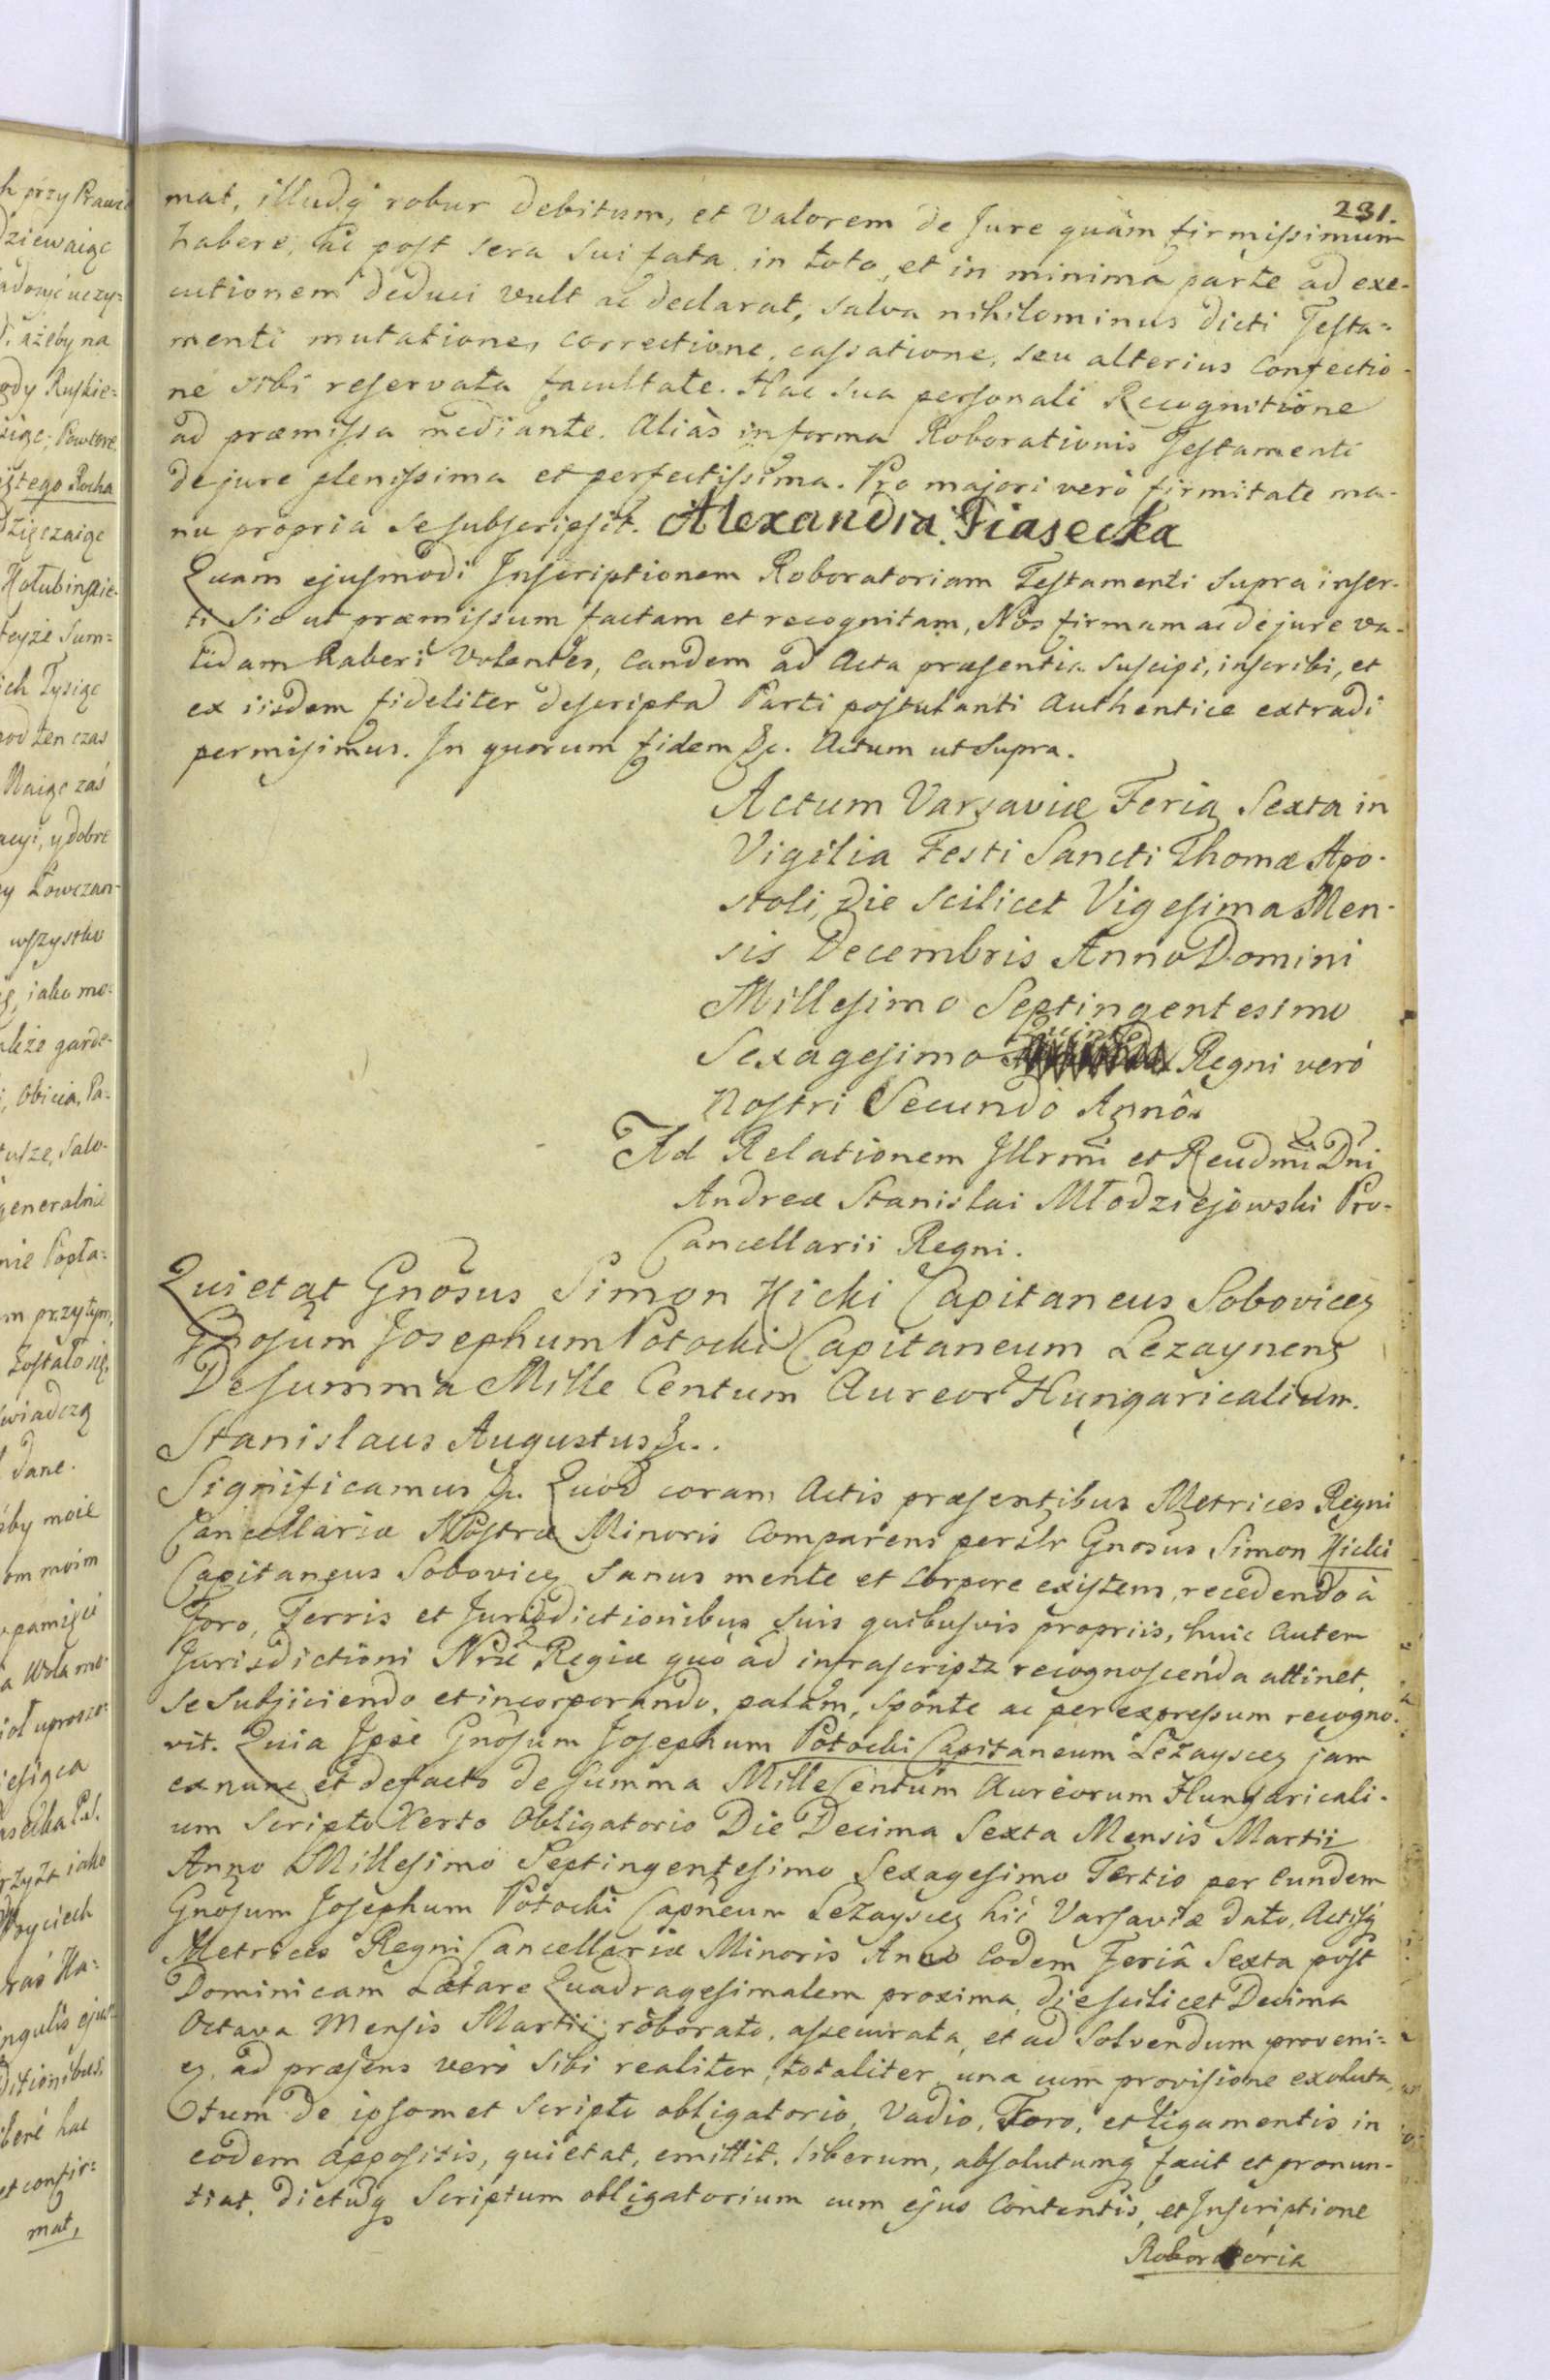 231.
mat, illudq robur debitum, et Valorem de Jure quàm firmissimum
habere, ac post sera sui fata in toto, et in minima parte ad exe-
cutionem deduci vult ac declarat, salva nihilominus dicti Testa=
menti mutatione, correctione, cassatione, seu alterius Confectio-
ne sibi reservata facultate. Hac sua personali Recognitione
ad præmissa mediante. Aliàs in forma Roborationis Testamenti
de jure plenissima et perfectissima. Pro majori verò firmitate ma-
nu propria se subscripsit. Alexandra Piasecka
Quam ejusmodi Inscriptionem Roboratoriam Testamenti supra inser-
ti sic ut præmissum factam et recognitam, Nos firmam ac de jure va-
lidam haberi Volentes, eandem ad Acta præsentia suscipi, inscribi, et
ex iisdem fideliter descripta Parti postulanti Authentice extradi
permisimus. In quorum fidem &c. Actum ut supra.
Actum Varsaviæ Feria Sexta in
Vigilia Festi Sancti Thomæ Apo-
stoli, die scilicet Vigesima Men-
sis Decembris Anno Domini
Millesimo Septingentesimo
Sexagesimo Quinto Regni verò
Nostri Secundo Annô.
Ad Relationem Illrmi et Reudmi Dni
Andreæ Stanislai Młodziejowski Pro-
Cancellarii Regni.
Quietat Gnosus Simon Hicki Capitaneus Sobovicen
Gnosum Josephum Potocki Capitaneum Lezaynens
De summa Mille Centum Aureor Hungaricalium.
Stanislaus Augustus &c.
Significamus &c. Quod coram Actis præsentibus Metrices Regni
Cancellariæ Nostræ Minoris Comparens persolr Gnosus Simon Hicki
Capitaneus Sobovicen sanus mente et corpore existens, recedendo à
Foro, Terris et Jurisdictionibus suis quibusvis propriis, huic autem
Jurisdictioni Nræ Regiæ quò ad infrascripta recognoscenda attinet,
se subjiciendo et incorporando, palàm, sponte ac per expressum recogno-
vit. Quia Ipse Gnosum Josephum Potocki Capitaneum Leżayscen jam
ex nunc et de facto de summa Mille Centum Aureorum Hungaricali-
um Scripto Certo Obligatorio Die Decima Sexta Mensis Martii
Anno Millesimo Septingentesimo Sexagesimo Tertio per Eundem
Gnosum Josephum Potocki Capneum Leżayscen hic Varsaviæ dato, Actisq
Metrices Regni Cancellariæ Minoris Anno Eodem Feriâ Sexta post
Dominicam Lætare Quadragesimalem proxima, die scilicet Decima
Octava Mensis Martii roborato, assecurata, et ad Solvendum proveni=
en, ad præsens verò sibi realiter, totaliter, una cum provisione exoluta,
tum de ipsomet Scripto obligatorio, Vadio, Foro, et ligamentis in
eodem appositis, quietat, emittit, liberum, absolutumq facit et pronun-
tiat, dictudq Scriptum obligatorium cum ejus Contentis, et Inscriptione
Roboratoria